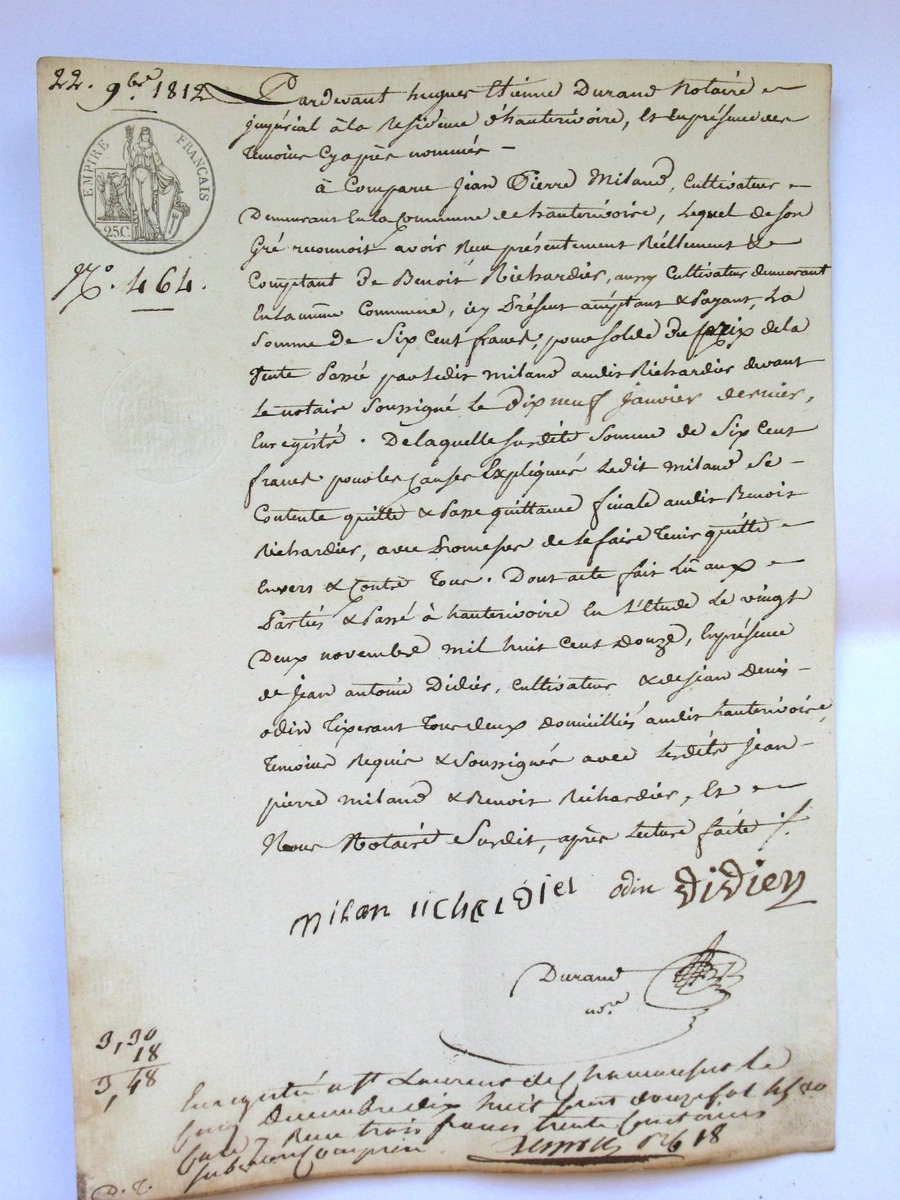 22. 9bre 1812
EMPIRE FRANÇAIS
25C.
N°. 464.
Pardevant hugues Etienne Durand Notaire
impérial à la Residence d'hauterivoire, Et En présence des
temoins Cyaprès nommés —
à Comparu Jean Pierre Miland, Cultivateur
Demeurant En la Commune de hauterivoire, Lequel de Son
Gré reconnoit avoir Reçu présentement Réellement &
Comptant De Benoit Richardier, aussy Cultivateur demeurant
En la même Commune, icy Présent acceptant & Payant, La
Somme de Six Cent francs, pour Solde du prix de la
Vente Passée par Ledit Miland audit Richardier devant
Le notaire Soussigné Le Dix neuf Janvier dernier,
Enregistré. De laquelle Susdite Somme de Six Cent
francs pour les Causes Expliquées Ledit Miland Se
Contente quitte & Passe quittance finale audit Benoit
Richardier, avec Promesses de Le faire Tenir quitte
Envers & Contre Tous. Dont acte fait Lu aux
Parties & Passé à hauterivoire En l'Etude Le vingt
Deux novembre mil huit Cent Douze, En présence
de Jean antoine Didier, Cultivateur & de Jean Denis
odin Tixerant Tous deux domiciliés audit hauterivoire,
Temoins Requis & Soussignés avec Lesdits Jean
pierre Miland & Benoit Richardier, Et
Nous Notaire Susdit, après Lecture faite ./.
milan richardier odin didier
Durand
nore
3,30
18
3,48
Enregistré a St Laurens de Chamousset le
Decembre dix huit Cent douze fol
Case 7 Reçu trois francs trente Centimes
Subvention Comprise
18